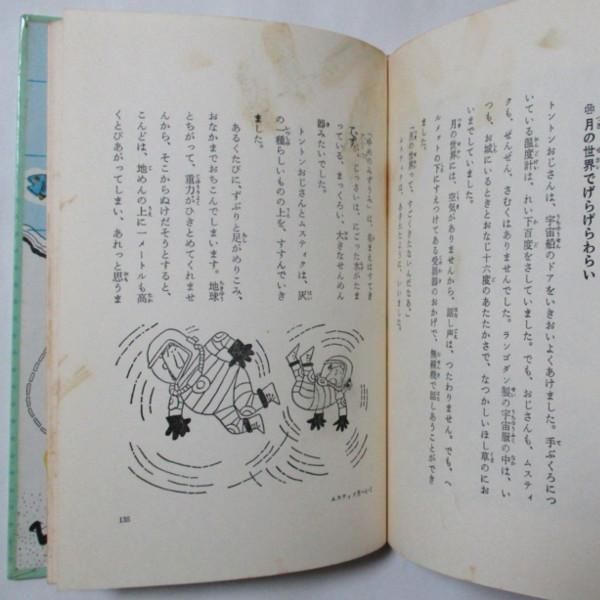 月の世界でげらげらわらい
トントンおじさんは、宇宙船のドアをいきおいよくあけました。手ぶくろにつ
いている温度計は、れい下百度をさしていました。でも、おじさんも、ムスティ
クも、ぜんぜん、さむくはありませんでした。ランゴダン製の宇宙服の中は、い
つも、お城にいるときとおなじ十六度のあたたかさで、なつかしいほし草のにお
いまでしていました。
月の世界には、空気がありませんから、話し声は、つたわりません。でも、ヘ
ルメットの下にすえつけてある受話器のおかげで、無線機で話しあうことができ
ました。
「月の世界って、すごくきたないんだなあ。」
ムスティクは、あきれたように、いいました。
です。
っている、まっくろい、大きなせんめん
器みたいでした。
トントンおじさんとムスティクは、灰
の一種らしいものの上を、すすんでいき
ました。
あるくたびに、ずぶりと足がめりこみ、
おなかまでおちこんでしまいます。地球
とちがって、重力がひきとめてくれませ
んから、そこからぬけだそうとすると、
こんどは、地めんの上に一メートルも高
くとびあがってしまい、あれっと思うま
135